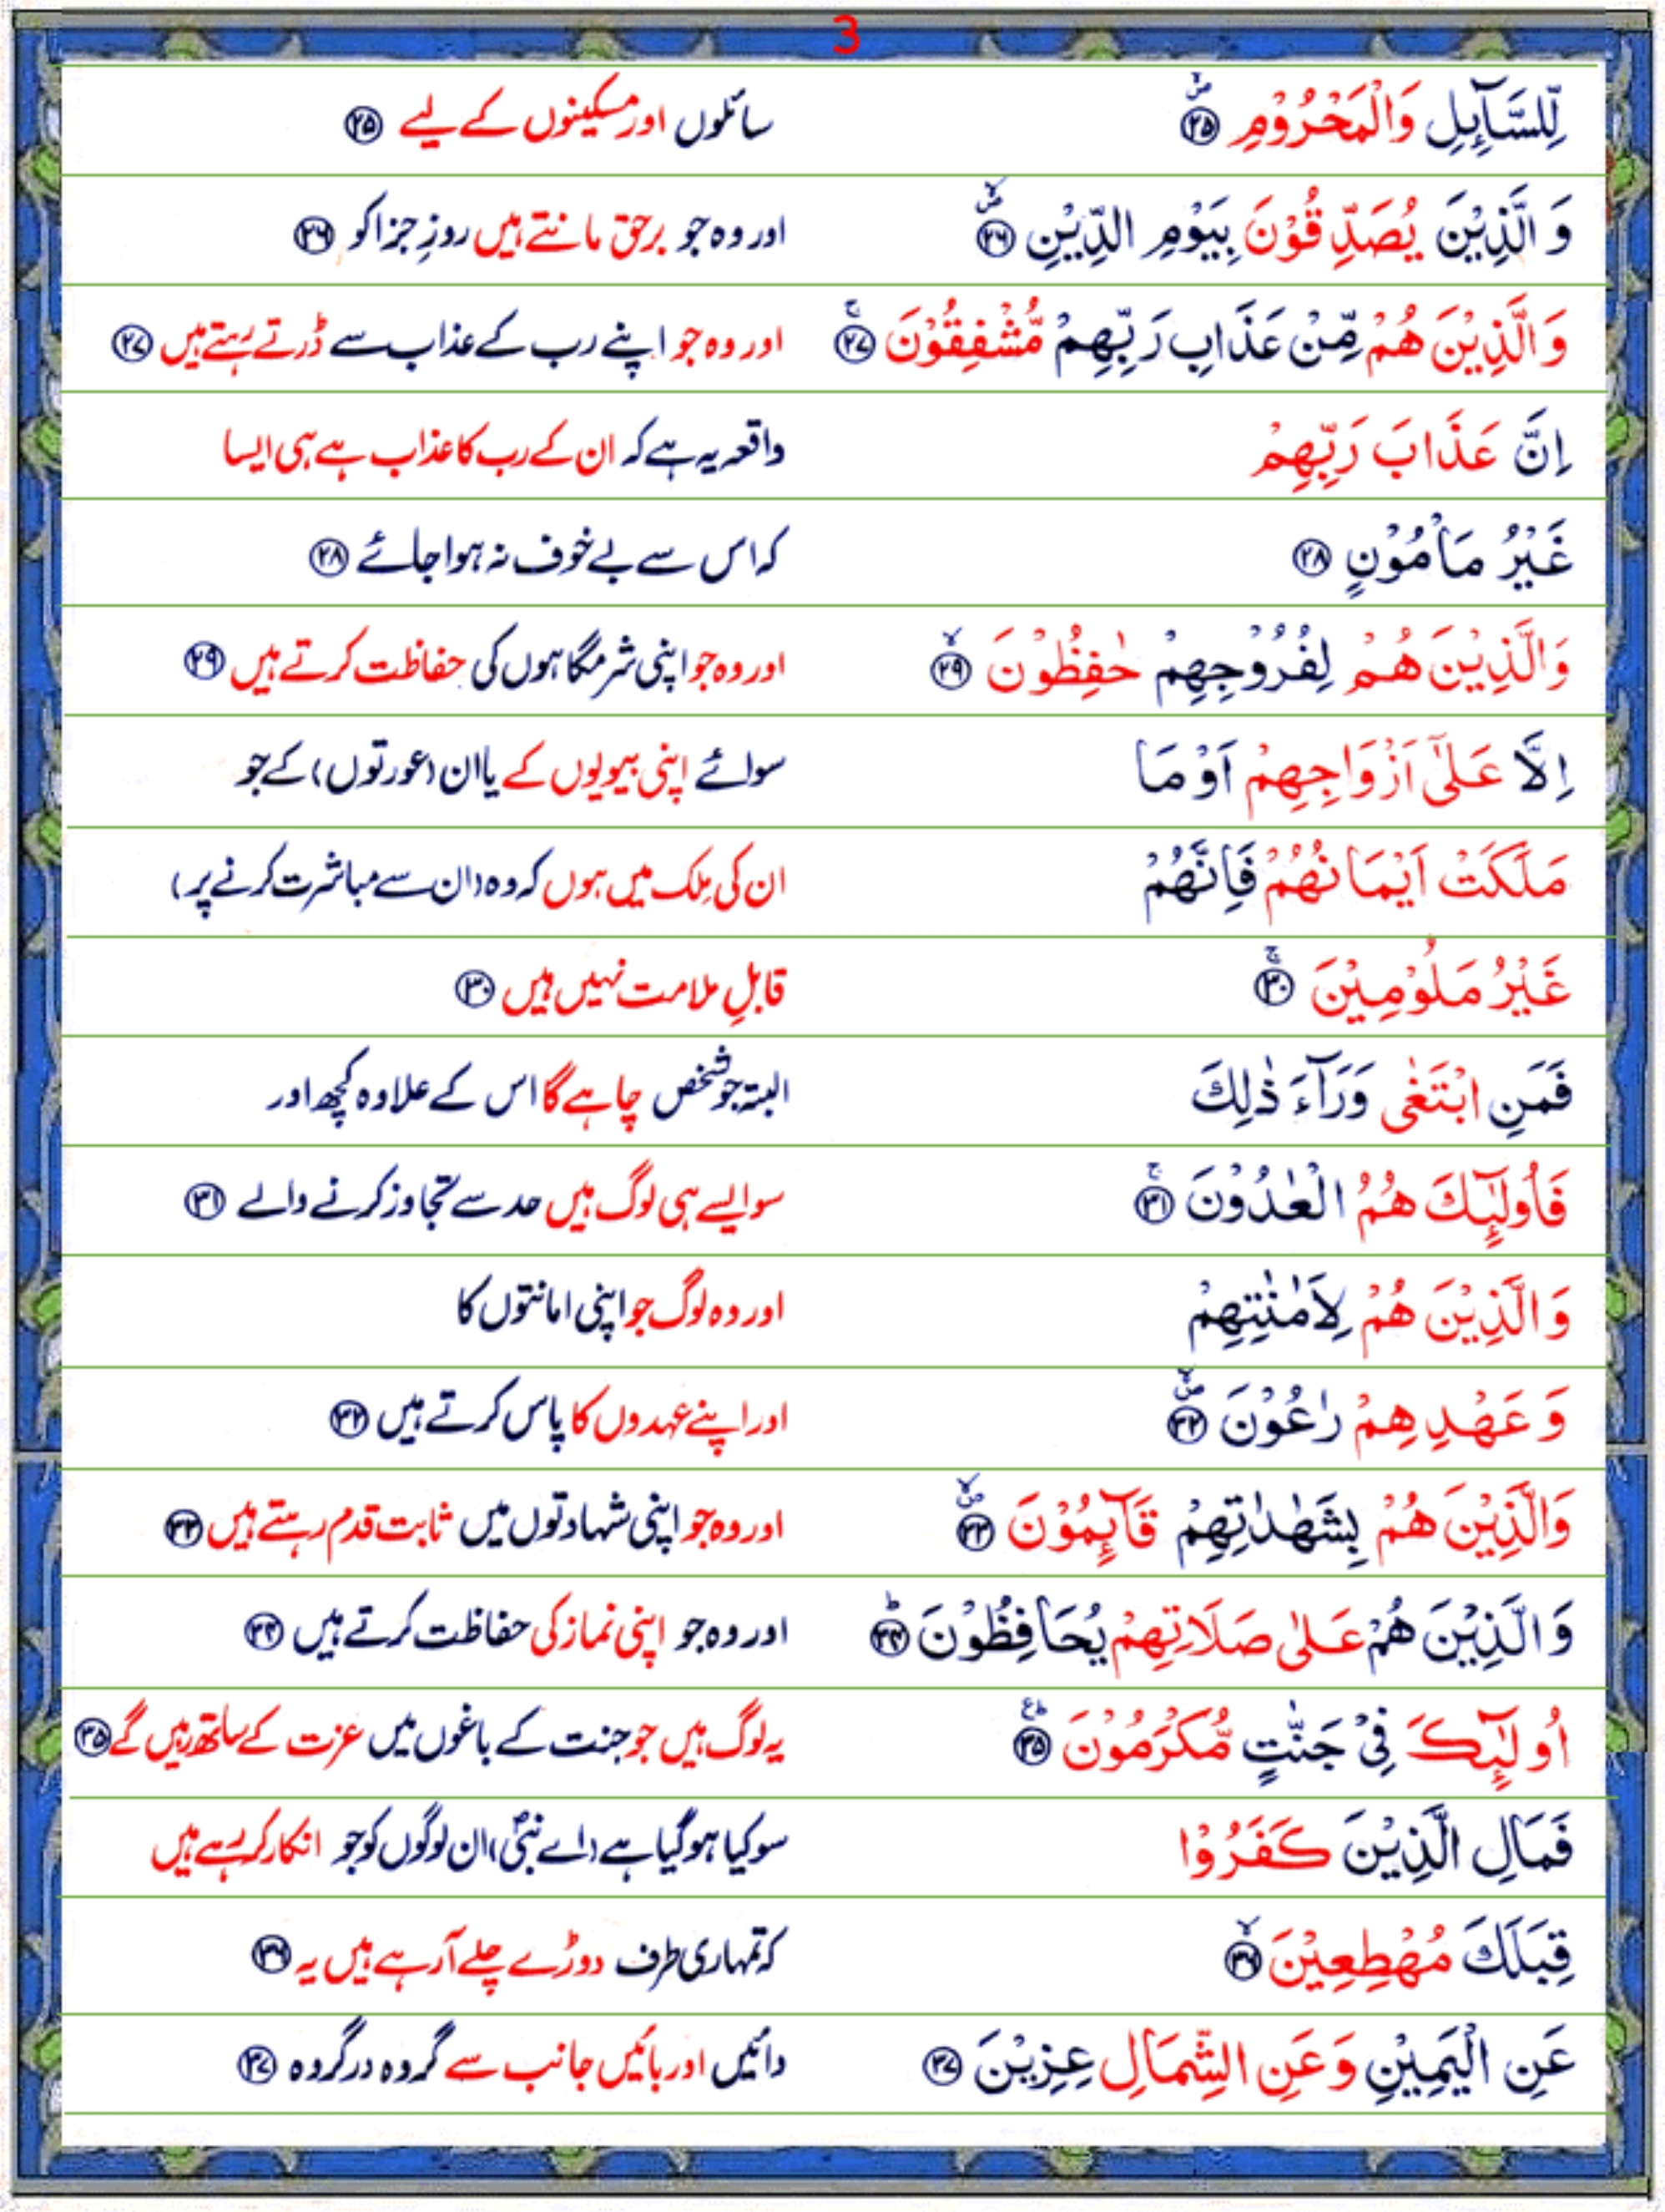 3
لِّلسَّآئِلِ وَالْمَحْرُوْمِ ۲۵ سائلوں اور مسکینوں کے لیے ۲۵
وَ الَّذِیْنَ یُصَدِّقُوْنَ بِیَوْمِ الدِّیْنِ ۲۶ اور وہ جو برحق مانتے ہیں روزِ جزا کو ۲۶
وَ الَّذِیْنَ هُمْ مِّنْ عَذَابِ رَبِّهِمْ مُّشْفِقُوْنَ ۲۷ اور وہ جو اپنے رب کے عذاب سے ڈرتے رہتے ہیں ۲۷
اِنَّ عَذَابَ رَبِّهِمْ واقعہ یہ ہے کہ ان کے رب کا عذاب ہے ہی ایسا
غَیْرُ مَاْمُوْنٍ ۲۸ کہ اس سے بے خوف نہ ہوا جائے ۲۸
وَالَّذِیْنَ هُمْ لِفُرُوْجِهِمْ حٰفِظُوْنَ ۲۹ اور وہ جو اپنی شرمگاہوں کی حفاظت کرتے ہیں ۲۹
اِلَّا عَلٰٓی اَزْوَاجِهِمْ اَوْ مَا سوائے اپنی بیویوں کے یا ان (عورتوں) کے جو
مَلَكَتْ اَیْمَانُهُمْ فَاِنَّهُمْ ان کی مِلک میں ہوں کہ وہ (ان سے مباشرت کرنے پر)
غَیْرُ مَلُوْمِیْنَ ۳۰ قابلِ ملامت نہیں ہیں ۳۰
فَمَنِ ابْتَغٰی وَرَآءَ ذٰلِكَ البتہ جو شخص چاہے گا اس کے علاوہ کچھ اور
فَاُولٰٓئِكَ هُمُ الْعٰدُوْنَ ۳۱ سو ایسے ہی لوگ ہیں حد سے تجاوز کرنے والے ۳۱
وَ الَّذِیْنَ هُمْ لِاَمٰنٰتِهِمْ اور وہ لوگ جو اپنی امانتوں کا
وَ عَهْدِهِمْ رٰعُوْنَ ۳۲ اور اپنے عہدوں کا پاس کرتے ہیں ۳۲
وَالَّذِیْنَ هُمْ بِشَهٰدٰتِهِمْ قَآئِمُوْنَ ۳۳ اور وہ جو اپنی شہادتوں میں ثابت قدم رہتے ہیں ۳۳
وَ الَّذِیْنَ هُمْ عَلٰی صَلَاتِهِمْ یُحَافِظُوْنَ ۳۴ اور وہ جو اپنی نماز کی حفاظت کرتے ہیں ۳۴
اُولٰٓئِكَ فِیْ جَنّٰتٍ مُّكْرَمُوْنَ ۳۵ یہ لوگ ہیں جو جنت کے باغوں میں عزت کے ساتھ رہیں گے ۳۵
فَمَالِ الَّذِیْنَ كَفَرُوْا سو کیا ہو گیا ہے (اے نبیؐ) ان لوگوں کو جو انکار کر رہے ہیں
قِبَلَكَ مُهْطِعِیْنَ ۳۶ کہ تمہاری طرف دوڑے چلے آرہے ہیں یہ ۳۶
عَنِ الْیَمِیْنِ وَ عَنِ الشِّمَالِ عِزِیْنَ ۳۷ دائیں اور بائیں جانب سے گروہ در گروہ ۳۷